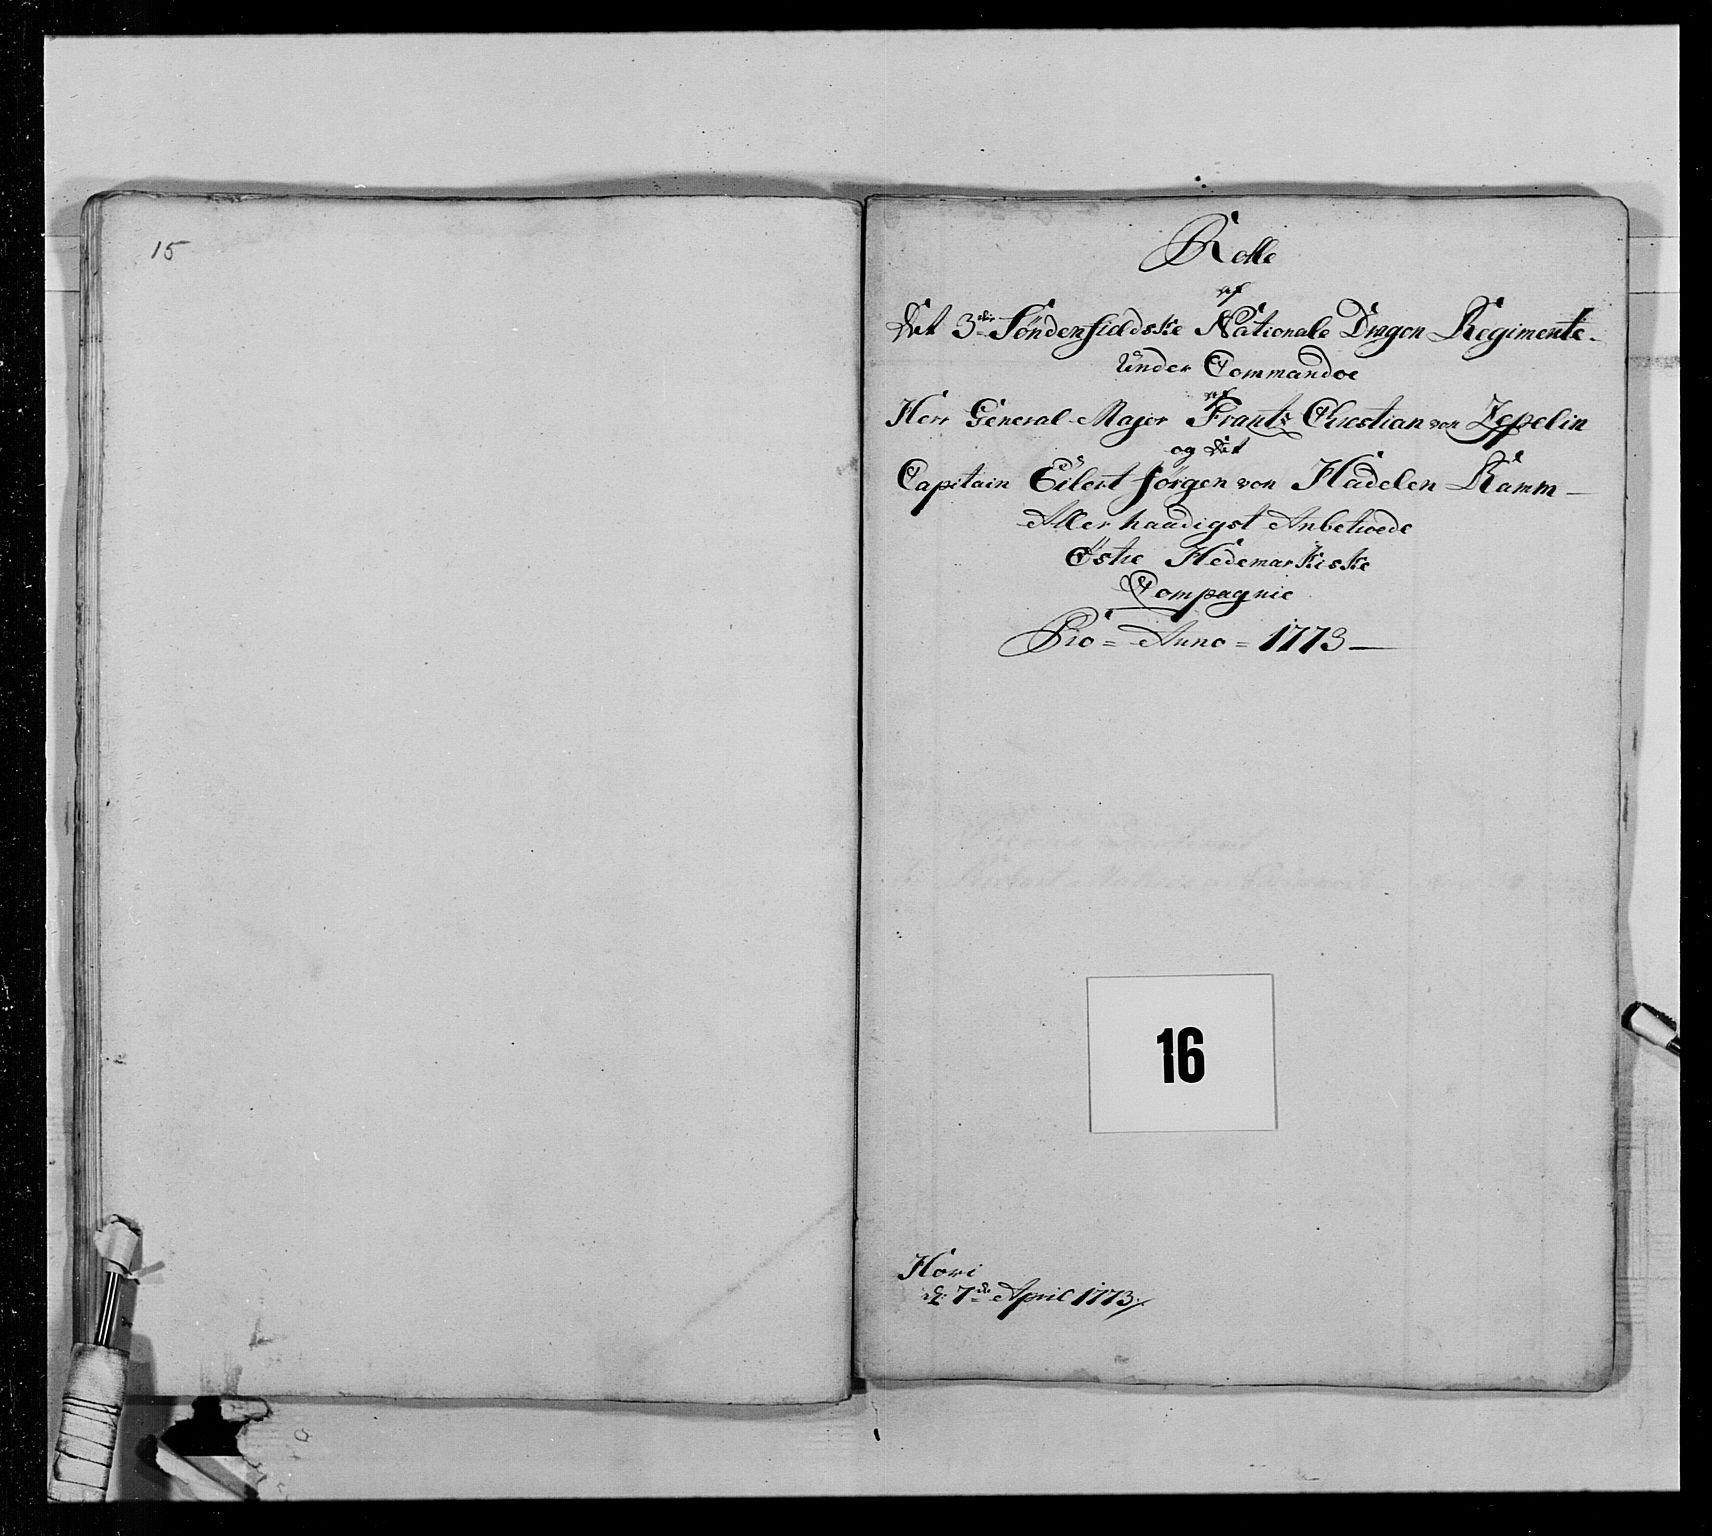 15
Rolle
af
Det 3die Söndenfieldske Nationale Dragon Regimente
Under Commandoe
af
Herr General-Major Frants Chrestian von Zepelin
og det
Capitain Eilert Jörgen von Hadelen Kamm
Allerhaadigst Anbetroede
Östre Hedemarkiske
Compagnie
Pro = Anno = 1773
16
Hovi
d: 7de April 1773